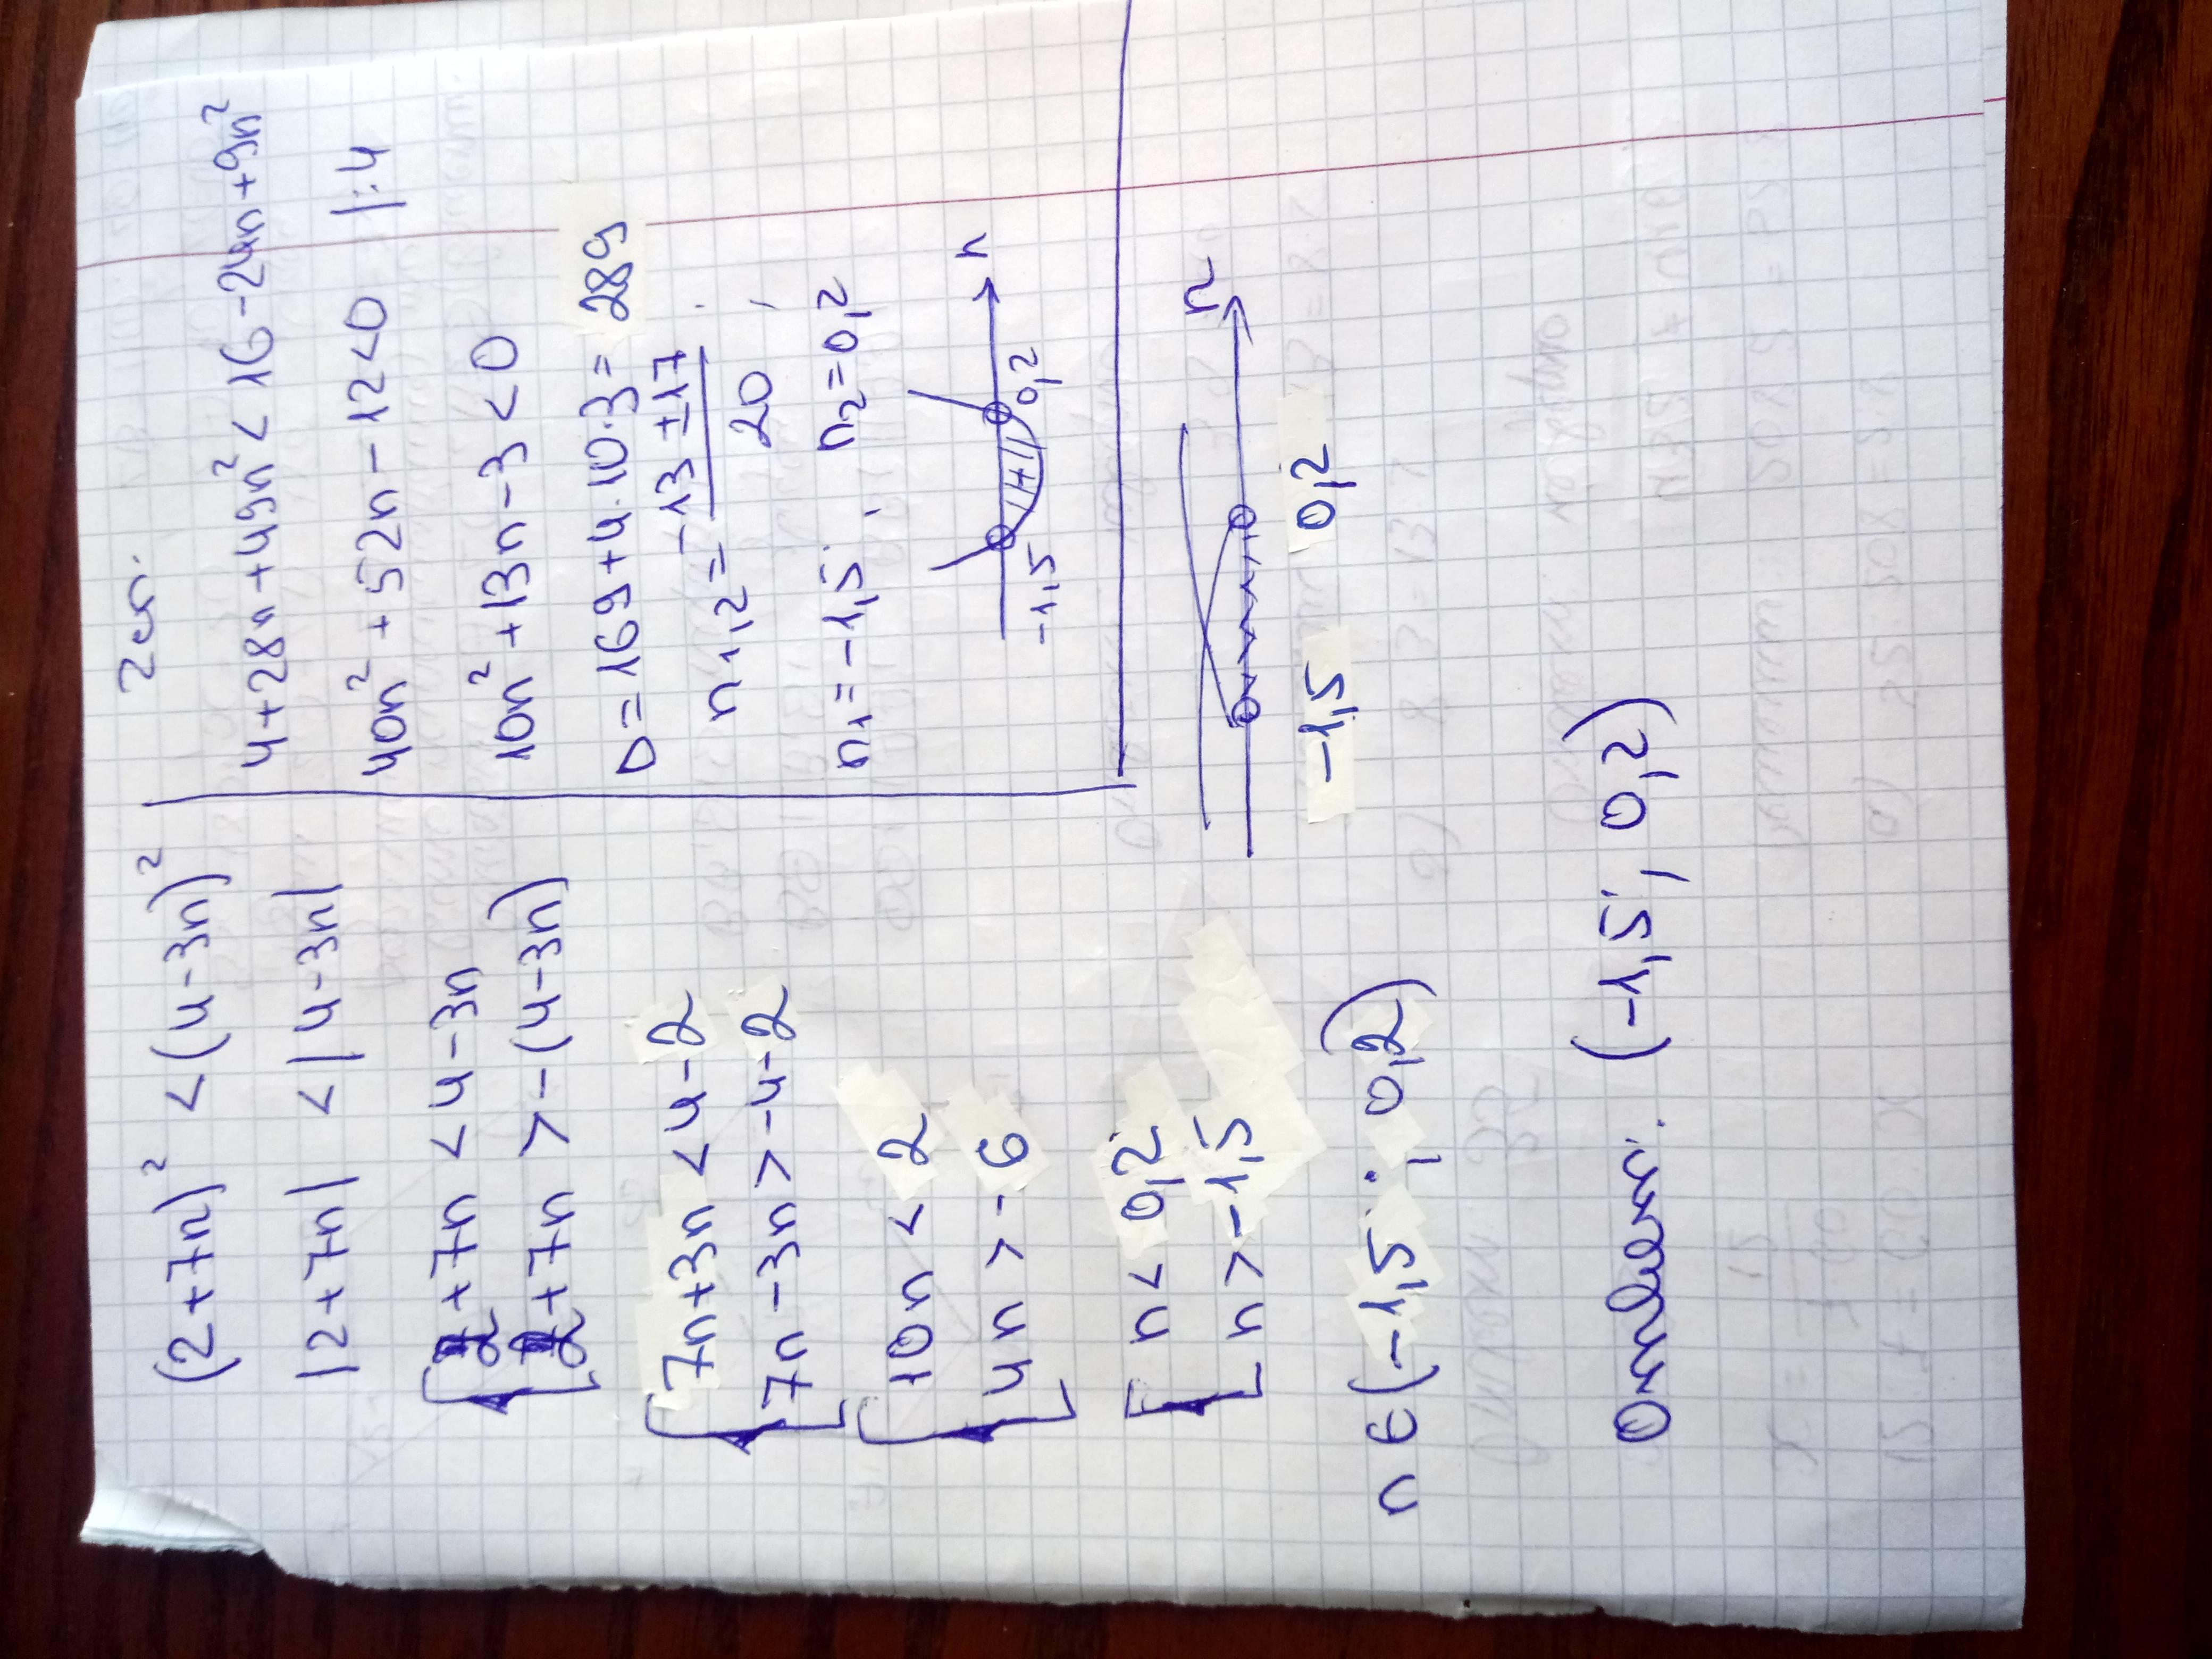 (2+7n)² < (4-3n)²
|2+7n| < |4-3n|
2+7n < 4-3n
2+7n > -(4-3n)
7n+3n < 4-2
7n-3n > -4-2
10n < 2
4n > -6
n < 0,2
n > -1,5
n ∈ (-1,5 ; 0,2)
2 сп.
4+28n+49n² < 16-24n+9n²
40n² + 52n - 12 < 0 |:4
10n² + 13n - 3 < 0
D = 169 + 4·10·3 = 289
n₁,₂ = -13 ± 17
20
n₁ = -1,5; n₂ = 0,2
-1,5 0,2 n
-1,5 0,2 n
Ответ: (-1,5; 0,2)